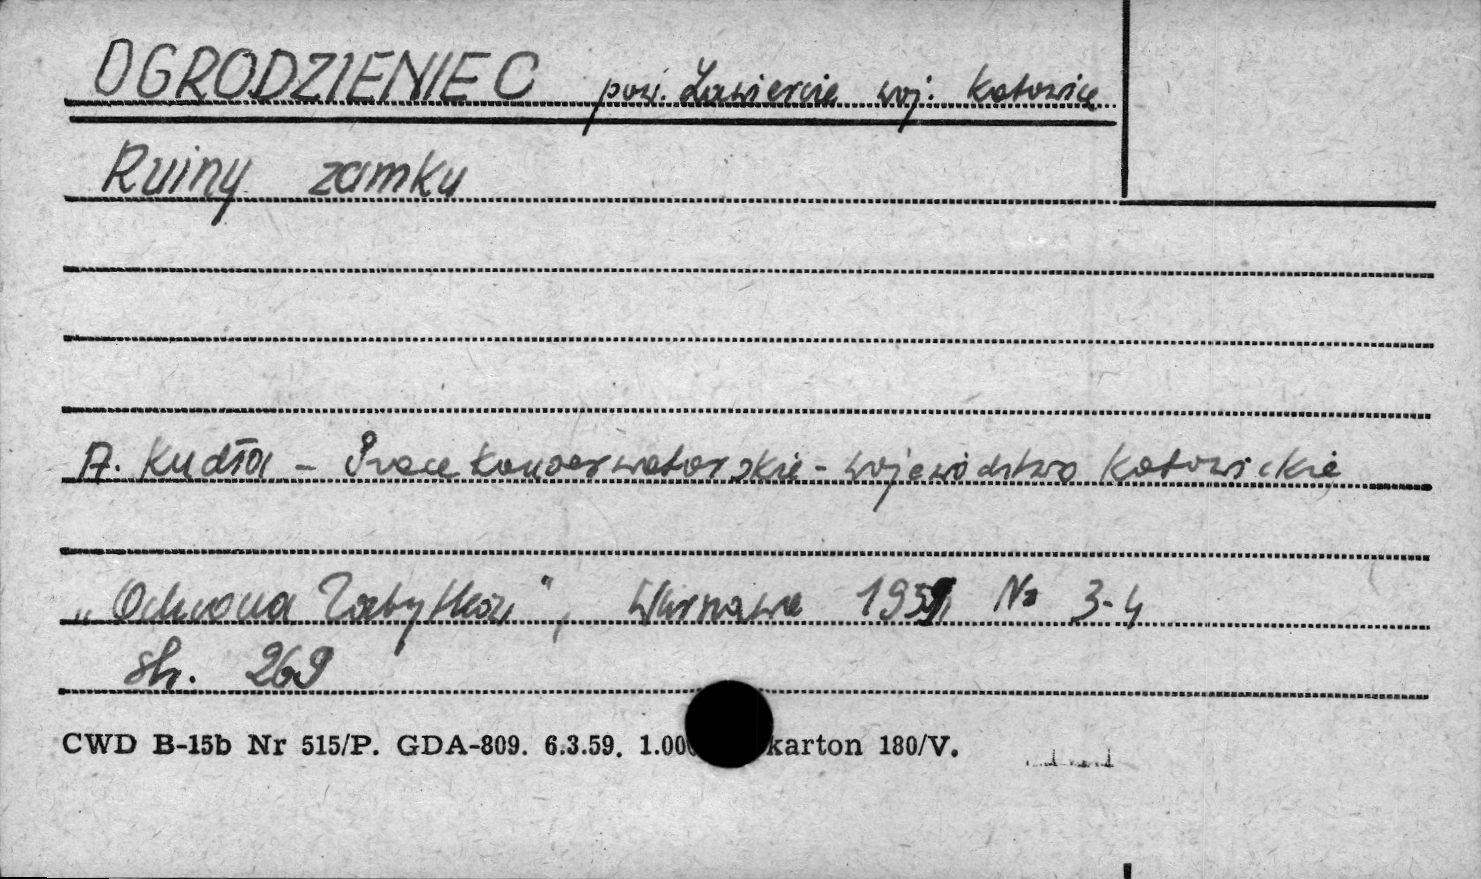 OGRODZIENIEC pow. Zawiercie woj. Katowice
Ruiny zamku
A. Kudła - Prace konserwatorskie - województwo Katowickie
„Ochrona Zabytków", Warszawa 1959 Nr 3-4
str. 269
CWD B-15b Nr 515/P. GDA-809. 6.3.59. 1.000 karton 180/V.